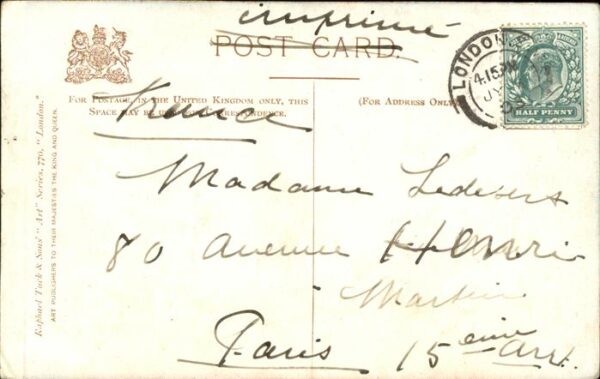 imprimé
POST CARD.
FOR POSTAGE IN THE UNITED KINGDOM ONLY, THIS
SPACE MAY BE USED FOR CORRESPONDENCE.
(FOR ADDRESS ONLY.)
LONDON
4.15PM
JY
HALF PENNY
Madame
80 Avenue Henri
Martin
Paris 15eme arr.
Raphael Tuck & Sons' "Art" Series, 770, "London."
ART PUBLISHERS TO THEIR MAJESTIES THE KING AND QUEEN.